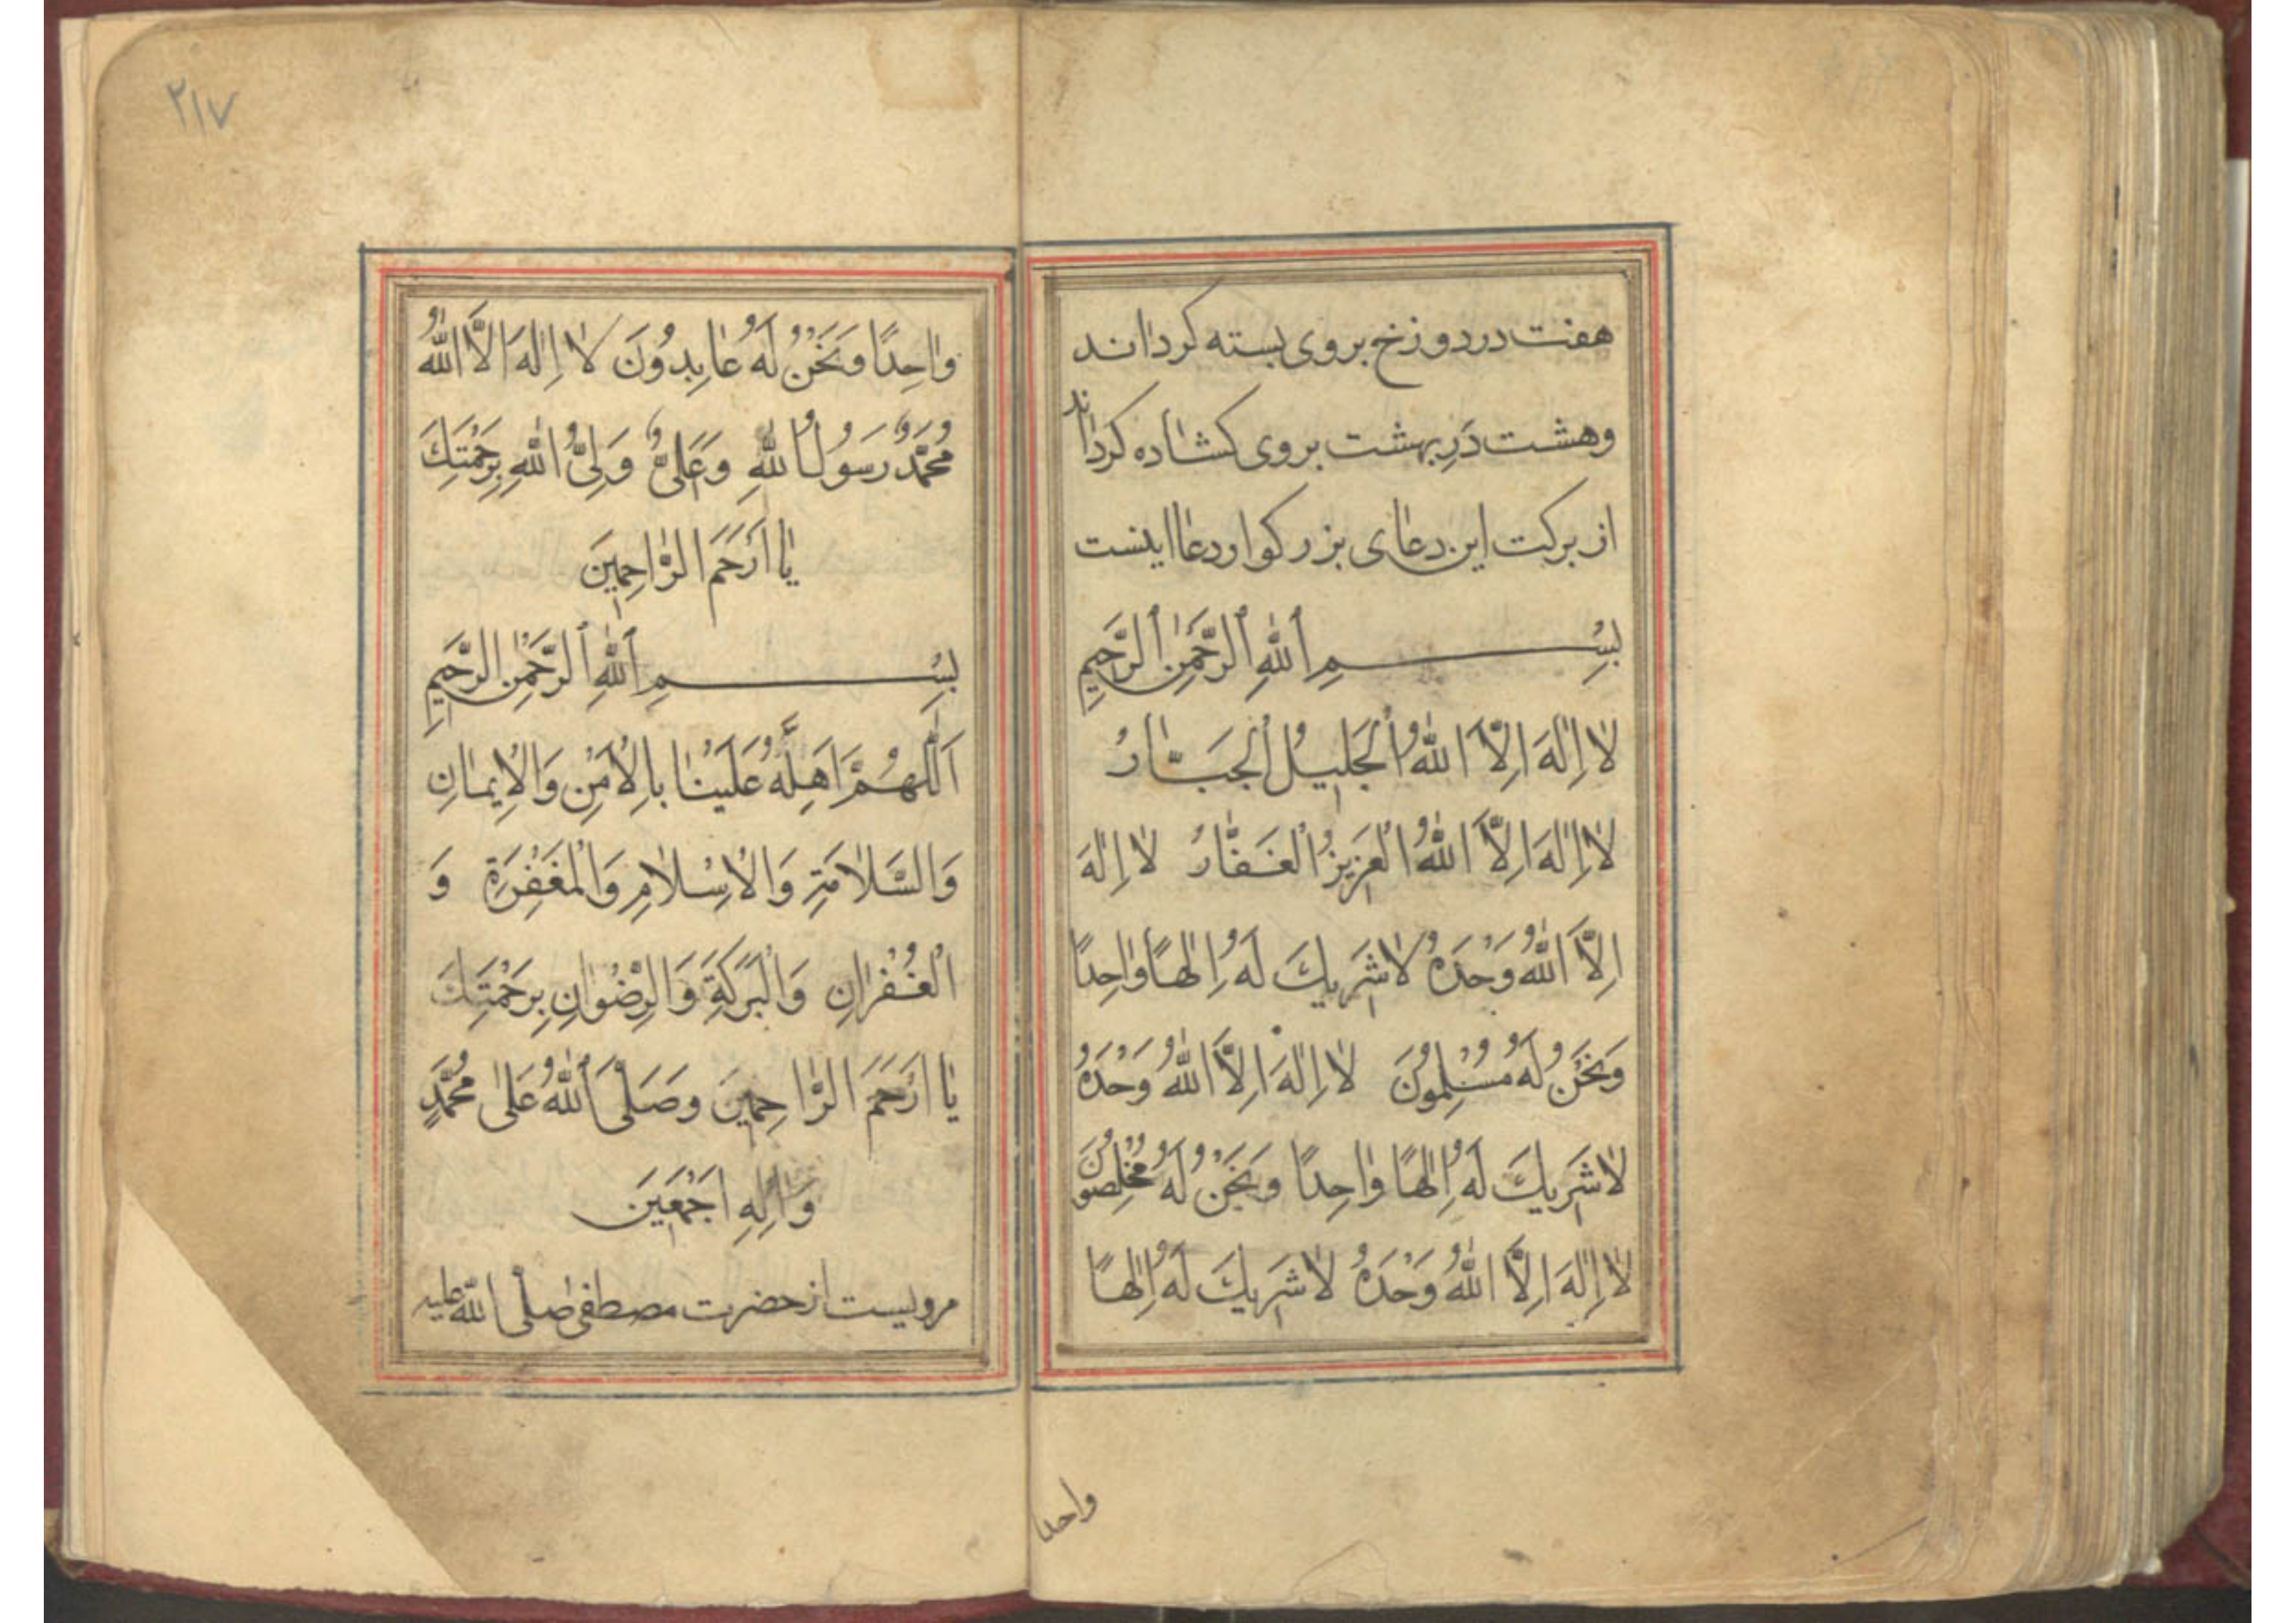 هفت در دوزخ بروی بسته کرداند
وهشت دَرِ بهشت بروی کشاده کرداند
از برکت این دعای بزرکوار دعا اینست
بِسْمِ ٱللّٰهِ ٱلرَّحْمٰنِ ٱلرَّحِیمِ
لٰا اِلٰهَ اِلَّا اللّٰهُ الْجَلیٖلُ الْجَبَّارُ
لٰا اِلٰهَ اِلَّا اللّٰهُ الْعَزیٖزُ الْغَفّٰارُ لٰا اِلٰهَ
اِلَّا اللّٰهُ وَحْدَهُ لٰا شَریٖكَ لَهُ اِلٰهًا وٰاحِدًا
وَنَحْنُ لَهُ مُسْلِمُونَ لٰا اِلٰهَ اِلَّا اللّٰهُ وَحْدَهُ
لٰا شَریٖكَ لَهُ اِلٰهًا وٰاحِدًا وَنَحْنُ لَهُ مُخْلِصُونَ
لٰا اِلٰهَ اِلَّا اللّٰهُ وَحْدَهُ لٰا شَریٖكَ لَهُ اِلٰهًا
واحدا
٢١٧
وٰاحِدًا وَنَحْنُ لَهُ عٰابِدُونَ لٰا اِلٰهَ اِلَّا اللّٰهُ
مُحَمَّدٌ رَسُولُ اللّٰهِ وَعَلیٌّ وَلِیُّ اللّٰهِ بِرَحْمَتِكَ
یٰا اَرْحَمَ الرّٰاحِمیٖنَ
بِسْمِ ٱللّٰهِ ٱلرَّحْمٰنِ الرَّحیٖمِ
اَللّٰهُمَّ اَهِلَّهُ عَلَیْنٰا بِالْاَمْنِ وَالْاٖیمٰانِ
وَالسَّلٰامَةِ وَالْاِسْلٰامِ وَالْمَغْفِرَةِ وَ
الْغُفْرٰانِ وَالْبَرَكَةِ وَالرِّضْوٰانِ بِرَحْمَتِكَ
یٰا اَرْحَمَ الرّٰاحِمیٖنَ وَصَلَّی ٱللّٰهُ عَلیٰ مُحَمَّدٍ
وَاٰلِهِ اَجْمَعیٖنَ
مرویست از حضرت مصطفی صلی الله علیه